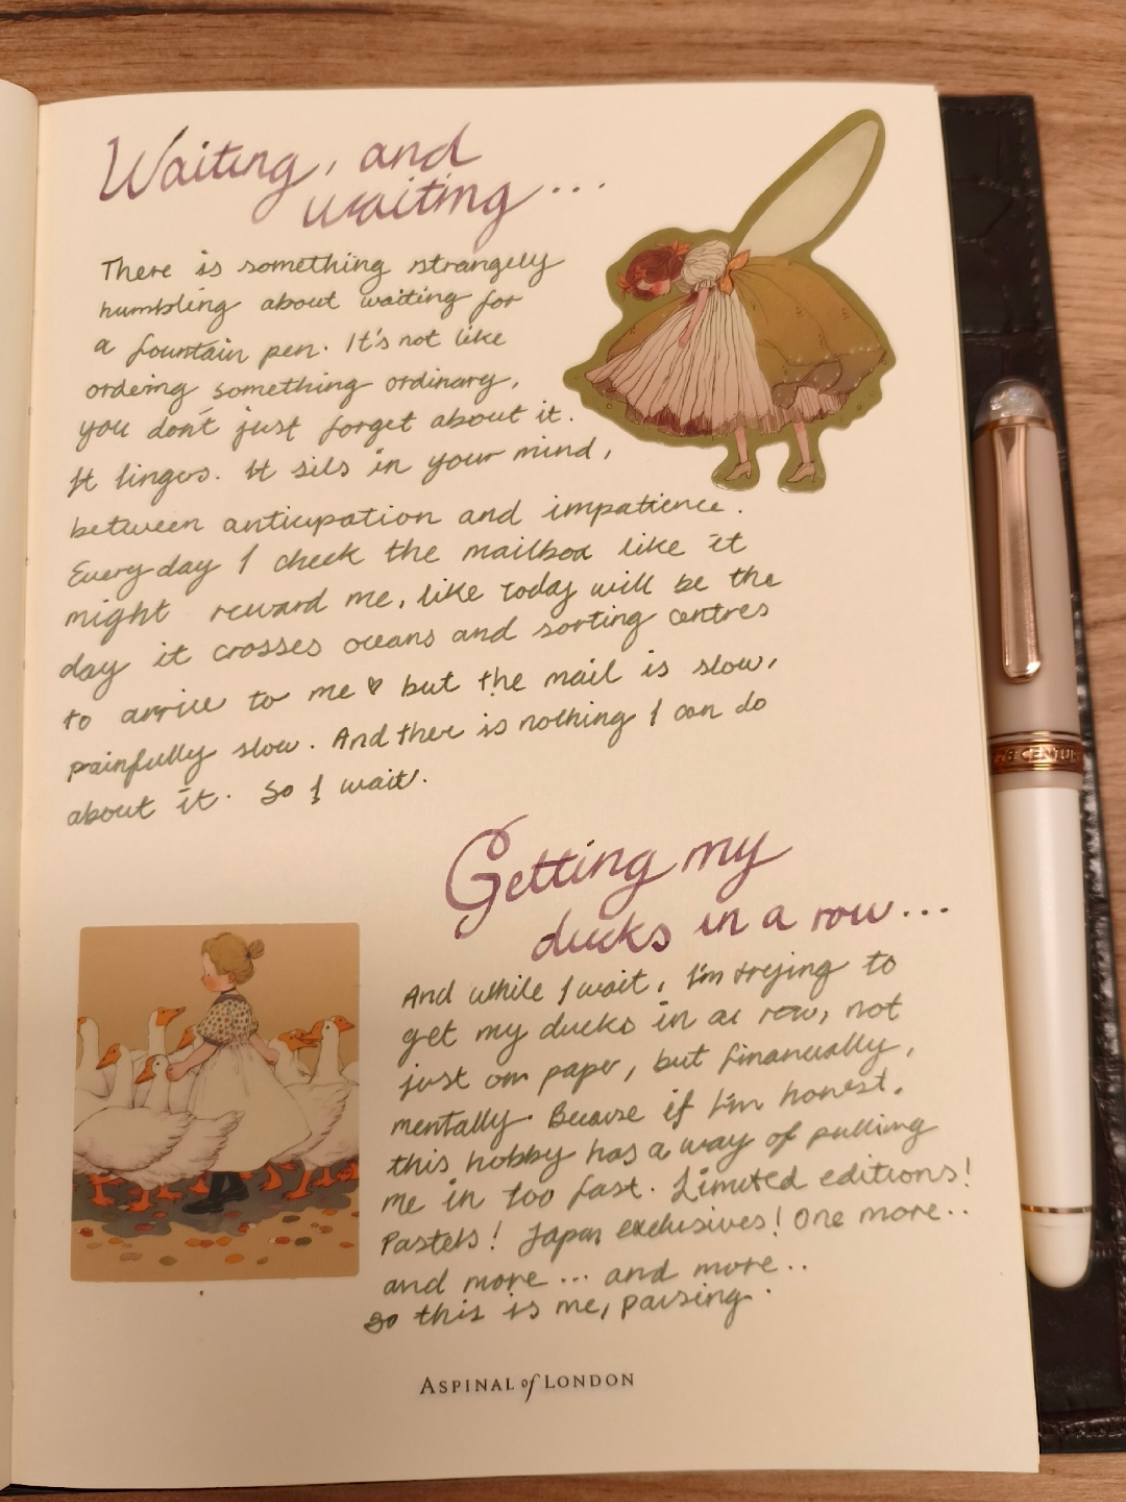 Waiting, and
waiting...
There is something strangely
humbling about waiting for
a fountain pen. It's not like
ordering something ordinary,
you don't just forget about it.
It lingers. It sits in your mind,
between anticipation and impatience.
Everyday I check the mailbox like it
might reward me, like today will be the
day it crosses oceans and sorting centres
to arrive to me ♥ but the mail is slow,
painfully slow. And ther is nothing I can do
about it. So I wait.
Getting my
ducks in a row...
And while I wait, I'm trying to
get my ducks in a row, not
just on paper, but financially,
mentally. Because if I'm honest.
this hobby has a way of pulling
me in too fast. Limited editions!
Pastels! Japan exclusives! One more..
and more... and more..
So this is me, pausing.
ASPINAL of LONDON
CENTURY